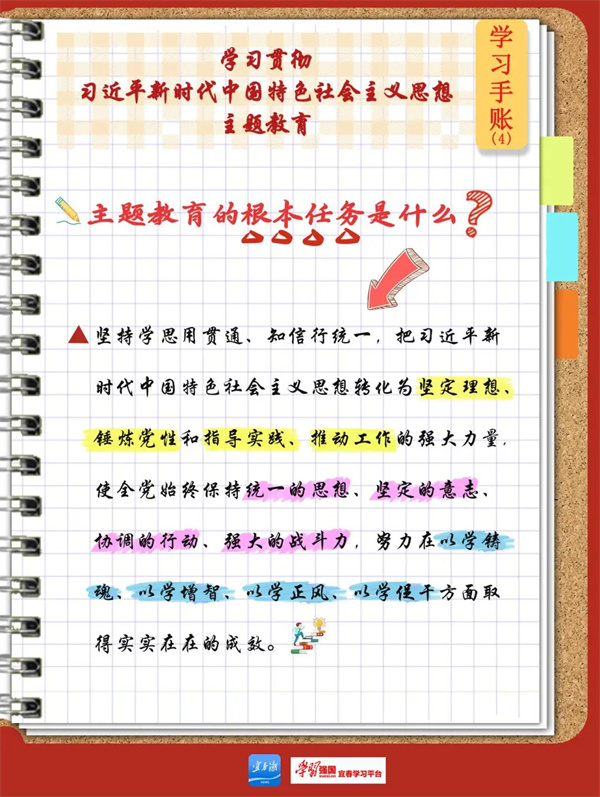 学习贯彻
习近平新时代中国特色社会主义思想
主题教育
学习手账
(4)
主题教育的根本任务是什么?
坚持学思用贯通、知信行统一，把习近平新
时代中国特色社会主义思想转化为坚定理想、
锤炼党性和指导实践、推动工作的强大力量，
使全党始终保持统一的思想、坚定的意志、
协调的行动、强大的战斗力，努力在以学铸
魂、以学增智、以学正风、以学促干方面取
得实实在在的成效。
学习强国 宜春学习平台